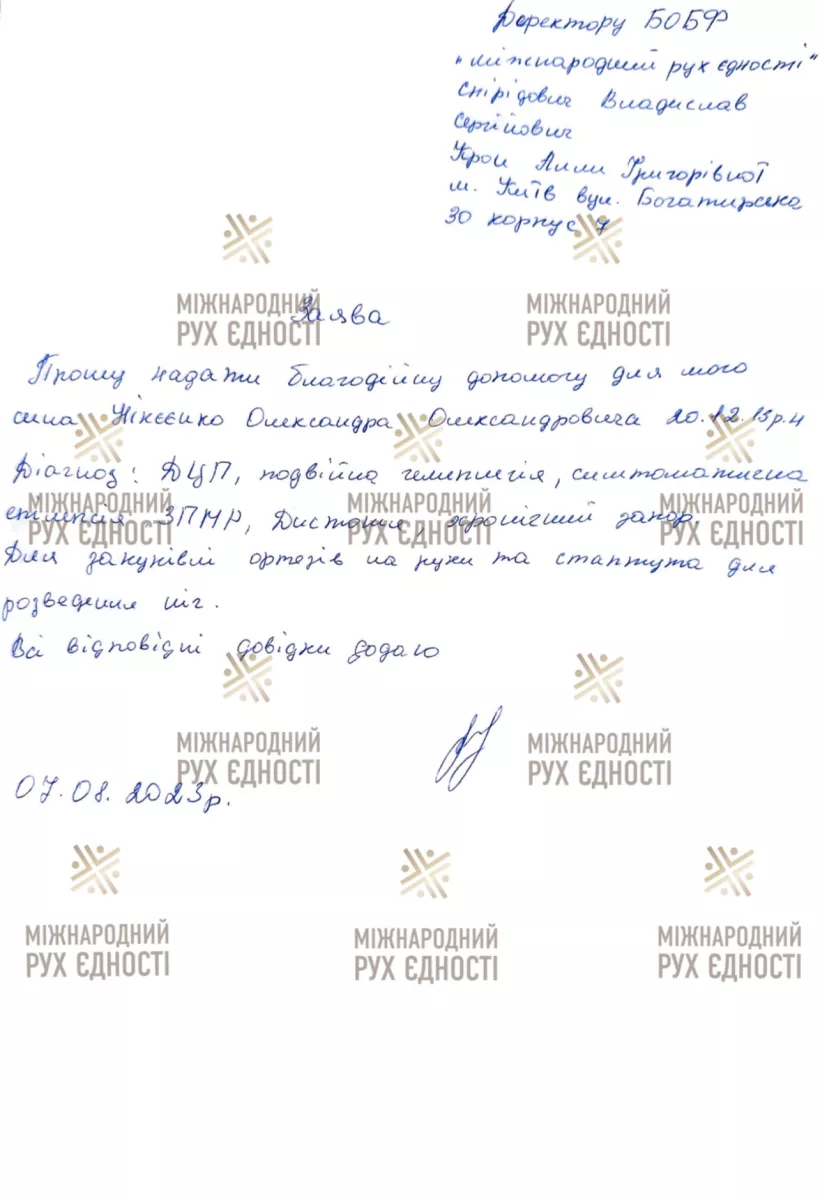 Директору БОБФ
"Міжнародний рух єдності"
Спірідович Владислав
Сергійович
Крои Лили Григорівної
м. Київ вул. Богатирська
30 корпус 7
Заява
Прошу надати благодійну допомогу для мого
сина Нікєєнко Олександра Олександровича 20.12.13р.н
Діагноз: ДЦП, подвійна геміплегія, симптоматична
епілепсія, ЗПМР, Дистонія, хронічний запор.
Для закупівлі ортезів на руки та стаптута для
розведення ніг.
Всі відповідні довідки додаю
07.08.2023р.
МІЖНАРОДНИЙ РУХ ЄДНОСТІ
МІЖНАРОДНИЙ РУХ ЄДНОСТІ
МІЖНАРОДНИЙ РУХ ЄДНОСТІ
МІЖНАРОДНИЙ РУХ ЄДНОСТІ
МІЖНАРОДНИЙ РУХ ЄДНОСТІ
МІЖНАРОДНИЙ РУХ ЄДНОСТІ
МІЖНАРОДНИЙ РУХ ЄДНОСТІ
МІЖНАРОДНИЙ РУХ ЄДНОСТІ
МІЖНАРОДНИЙ РУХ ЄДНОСТІ
МІЖНАРОДНИЙ РУХ ЄДНОСТІ